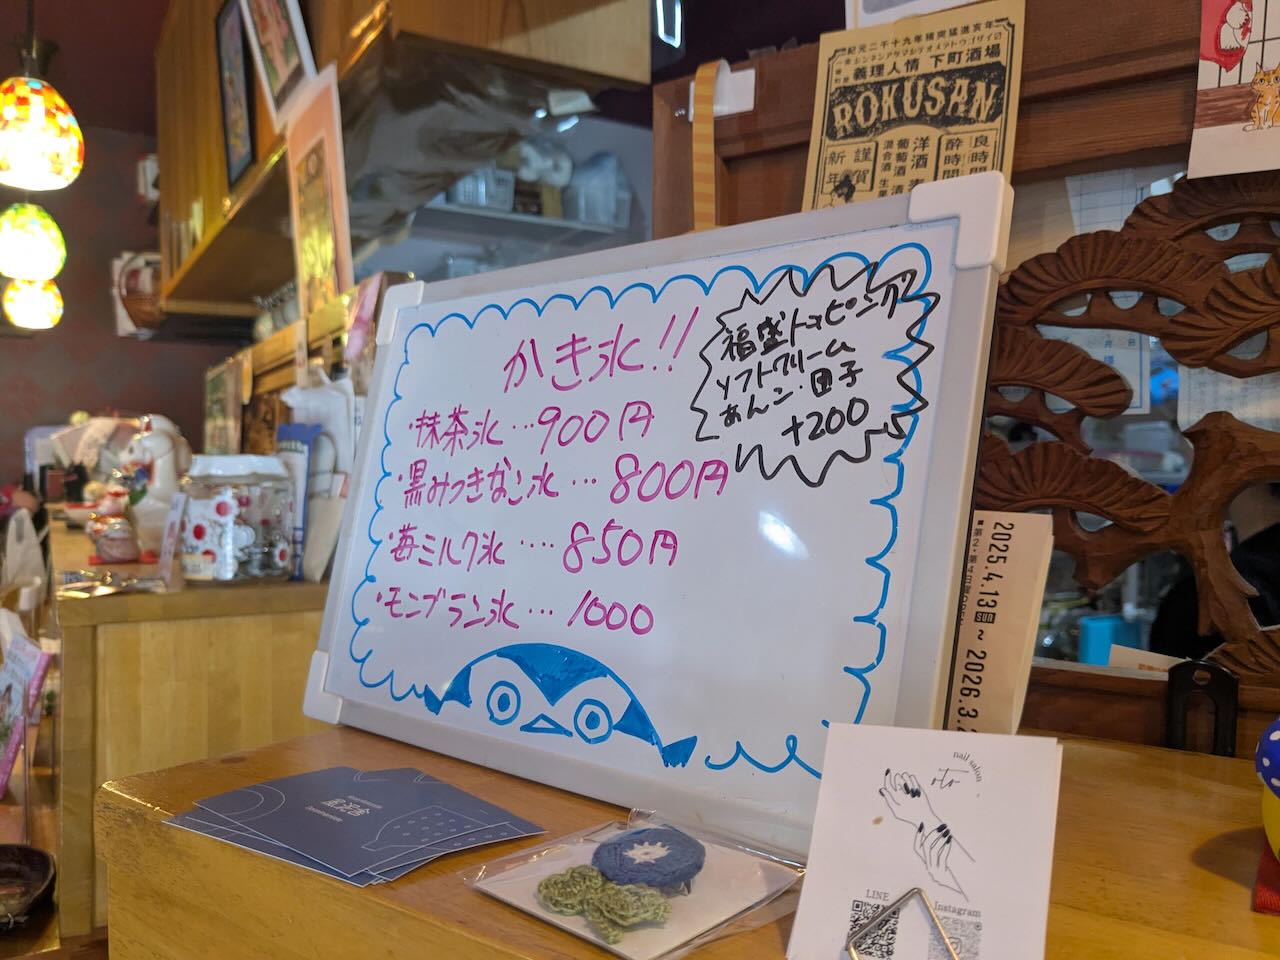 かき氷!!
・抹茶氷…900円
・黒みつきなこ氷…800円
・苺ミルク氷‥‥850円
・モンブラン氷…1000
福盛トッピング
ソフトクリーム
あんこ・団子
+200
紀元二千十九年猪突猛進亥年
義理人情 下町酒場
ROKUSAN
謹賀
新年
良時間
酔時間
洋酒
葡萄酒
混合酒
2025.4.13 SUN ~ 2026.3.
nail salon
oto
LINE
Instagram